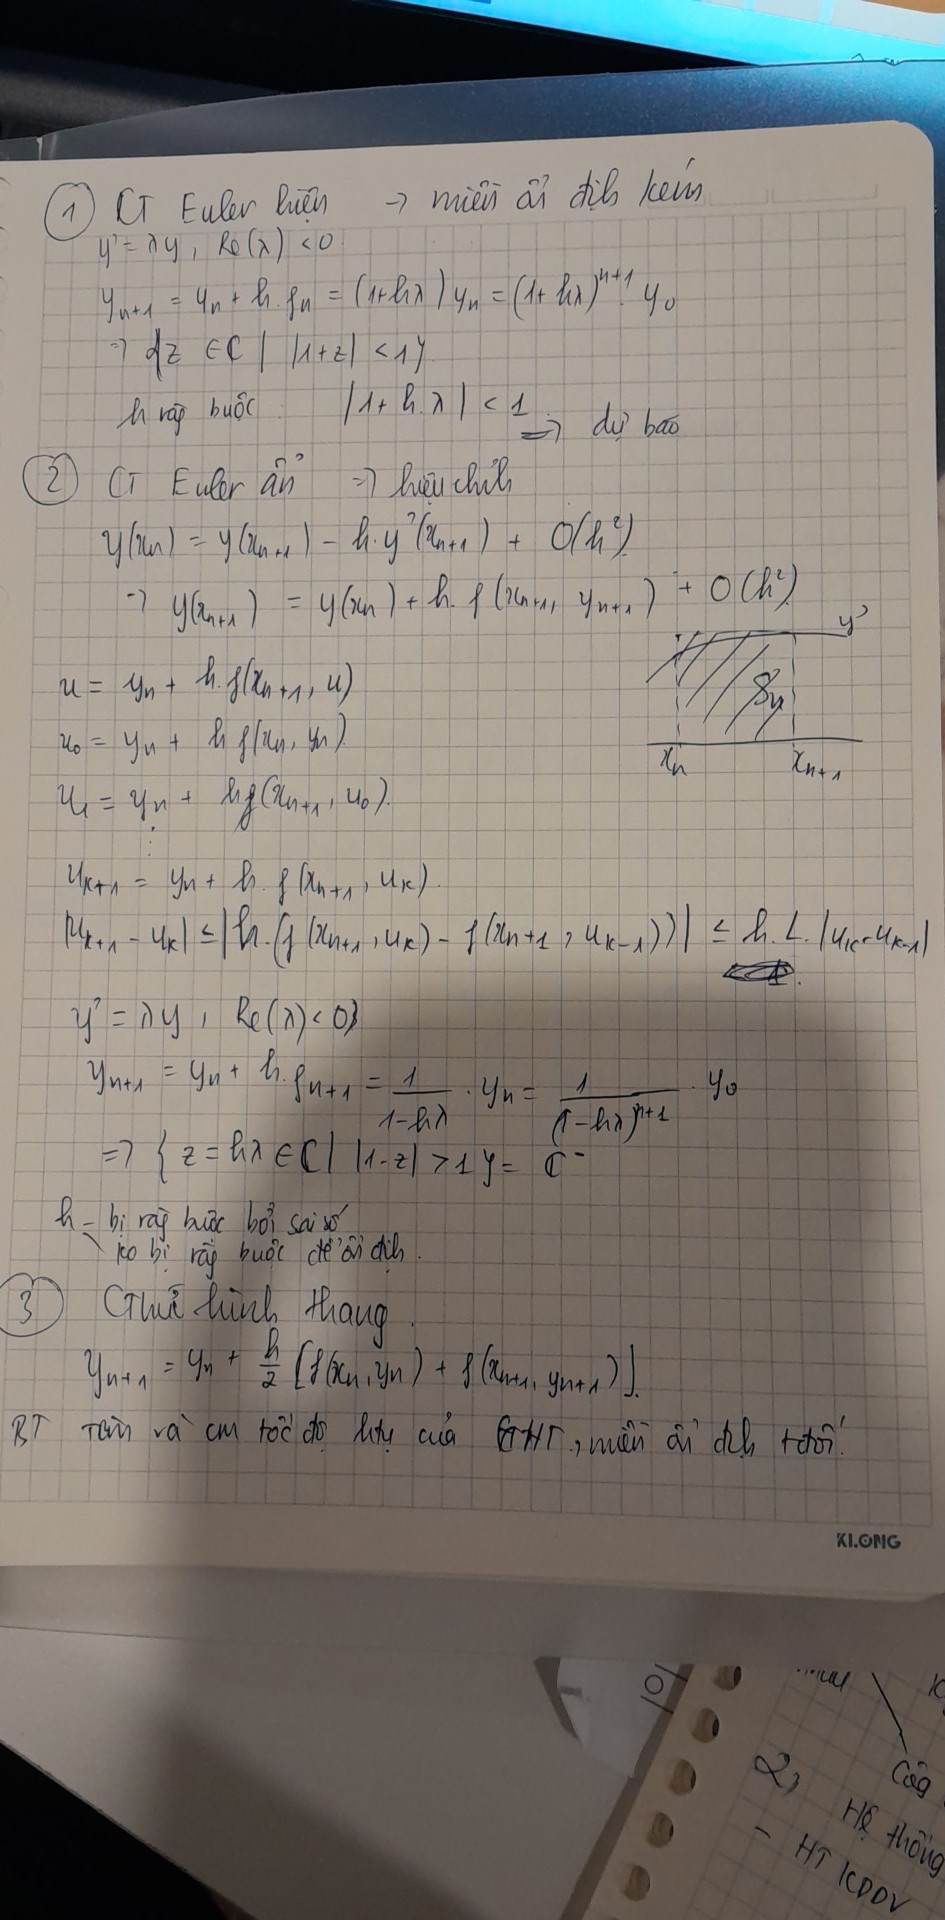 ① CT Euler hiện → miền ổn định kém
y' = λy, Re(λ) < 0
yₙ₊₁ = yₙ + h.fₙ = (1+hλ)yₙ = (1+hλ)ⁿ⁺¹. y₀
⇒ {z ∈ ℂ | |1+z| < 1}
h ràng buộc : |1+h.λ| < 1 ⇒ dự báo
② CT Euler ẩn ⇒ hiệu chỉnh
y(xₙ) = y(xₙ₊₁) - h.y'(xₙ₊₁) + O(h²)
⇒ y(xₙ₊₁) = y(xₙ) + h.f(xₙ₊₁, yₙ₊₁) + O(h²)
y'
u = yₙ + h.f(xₙ₊₁, u)
Sₙ
u₀ = yₙ + h f(xₙ, yₙ)
xₙ xₙ₊₁
u₁ = yₙ + hf(xₙ₊₁, u₀).
⋮
uₖ₊₁ = yₙ + h.f(xₙ₊₁, uₖ)
|uₖ₊₁ - uₖ| ≤ |h.(f(xₙ₊₁, uₖ) - f(xₙ₊₁, uₖ₋₁))| ≤ h.L.|uₖ - uₖ₋₁|
y' = λy, Re(λ) < 0
yₙ₊₁ = yₙ + h.fₙ₊₁ = 1/(1-hλ) . yₙ = 1/(1-hλ)ⁿ⁺¹ . y₀
⇒ {z = hλ ∈ ℂ | |1-z| > 1} = ℂ⁻
h - bị ràng buộc bởi sai số
ko bị ràng buộc để ổn định.
③ CThức hình thang
yₙ₊₁ = yₙ + h/2 [f(xₙ, yₙ) + f(xₙ₊₁, yₙ₊₁)].
BT Tìm và cm tốc độ htụ của CTHT, miền ổn định tđối.
KLONG
10
2,
Hệ thống
- HT KDDV